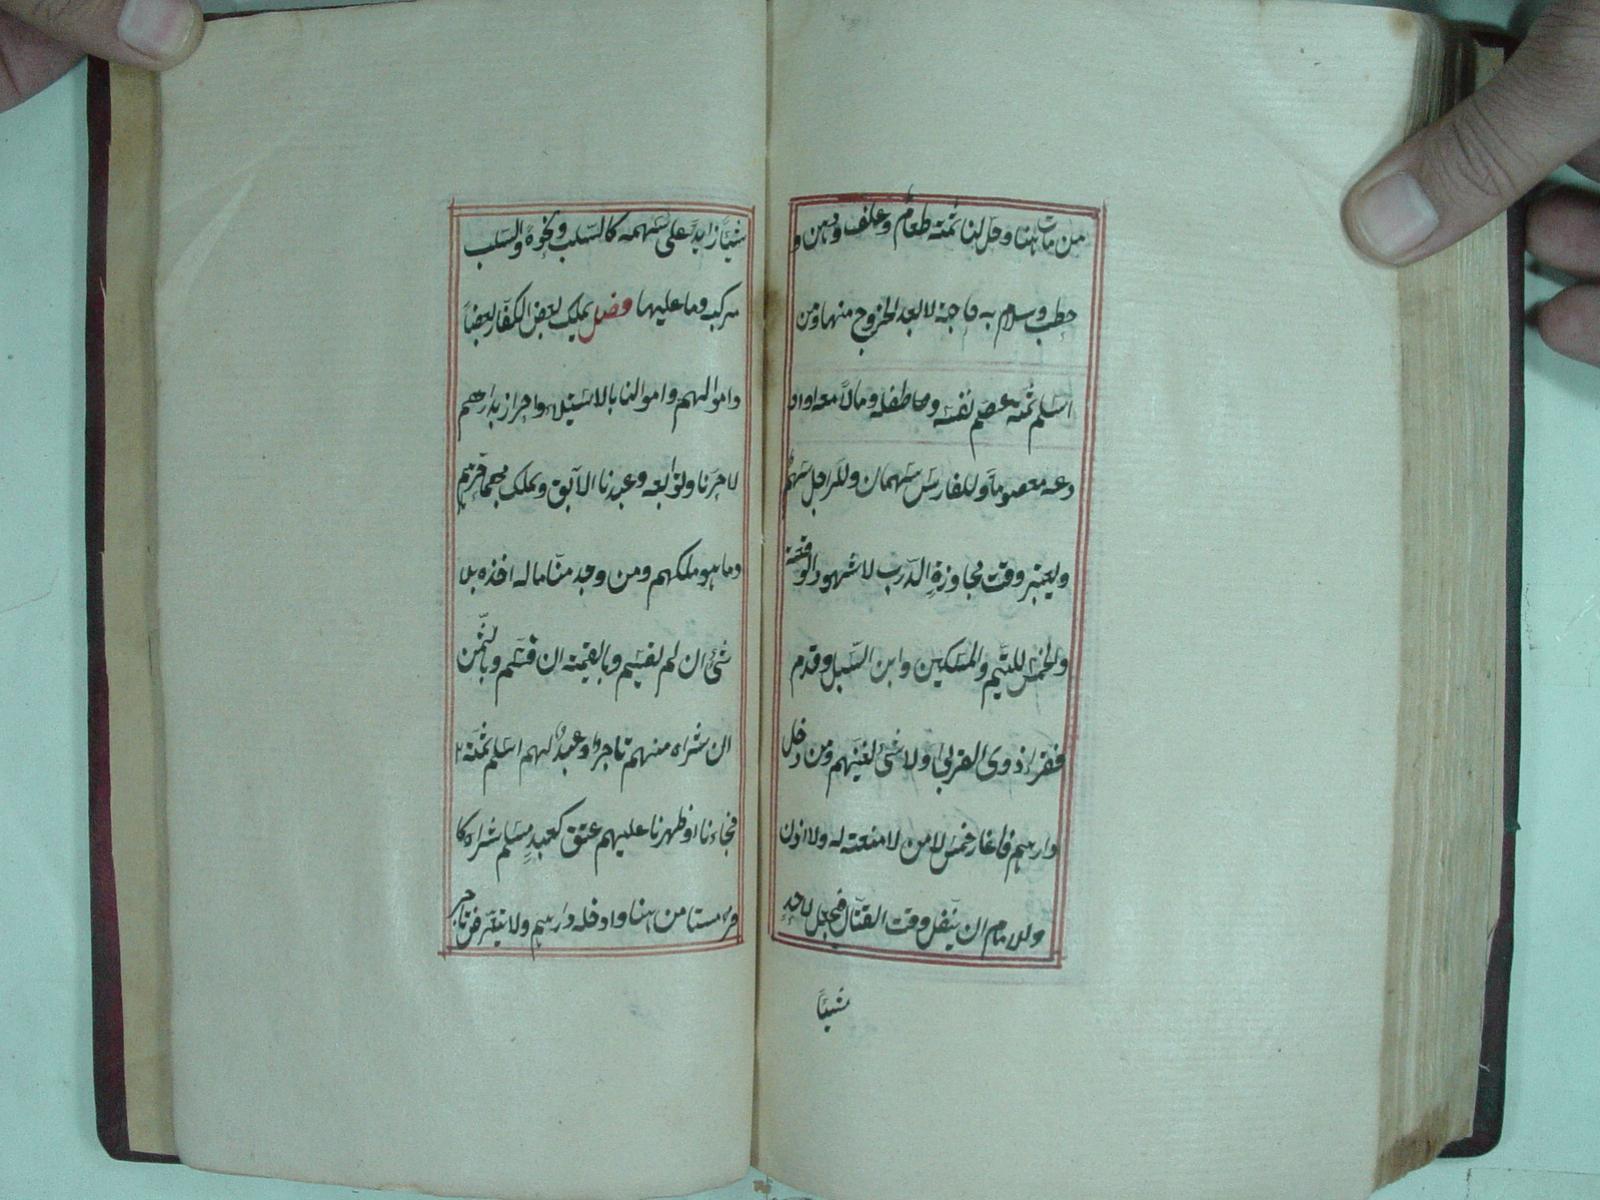 من مات هنا وحل لنا ثمته طعام وعلف ودهن و
حطب وسلاح به حاجة لا بعد الخروج منها ومن
اسلم ثمه عصم نفسه وطفله ومالا معه او او
دعه معصوما وللفارس سهمان وللراجل سهم
ويعتبر وقت مجاوزة الدرب لا شهود الوقعة
والخمس لليتيم والمسكين وابن السبيل وقدم
فقراء ذوى القربى ولا شئ لغنيهم ومن دخل
دارهم فاغار خمس لا من لا منعته له ولا اذن
وللامام ان ينفل وقت القتال فيجعل لاحد
شيئا
شيئا زايدا على سهمه كالسلب ونحوه والسلب
مركبه وما عليها وفصل يملك بعض الكفار بعضا
واموالهم واموالنا بالاستيلاء واحراز بدارهم
لا حرنا وتوابعه وعبدنا الآبق ونملك بهما حرهم
وما هو ملكهم ومن وجد منا ماله اخذه بلا
شئ ان لم يقسم وبالقيمة ان قسم وبالثمن
ان شراه منهم تاجر او عبد لهم اسلم ثمه
فجاءنا او ظهرنا عليهم عتق كعبد مسلم شراه كا
فر مستامن هنا وادخله دارهم ولا يتعرض تاجر